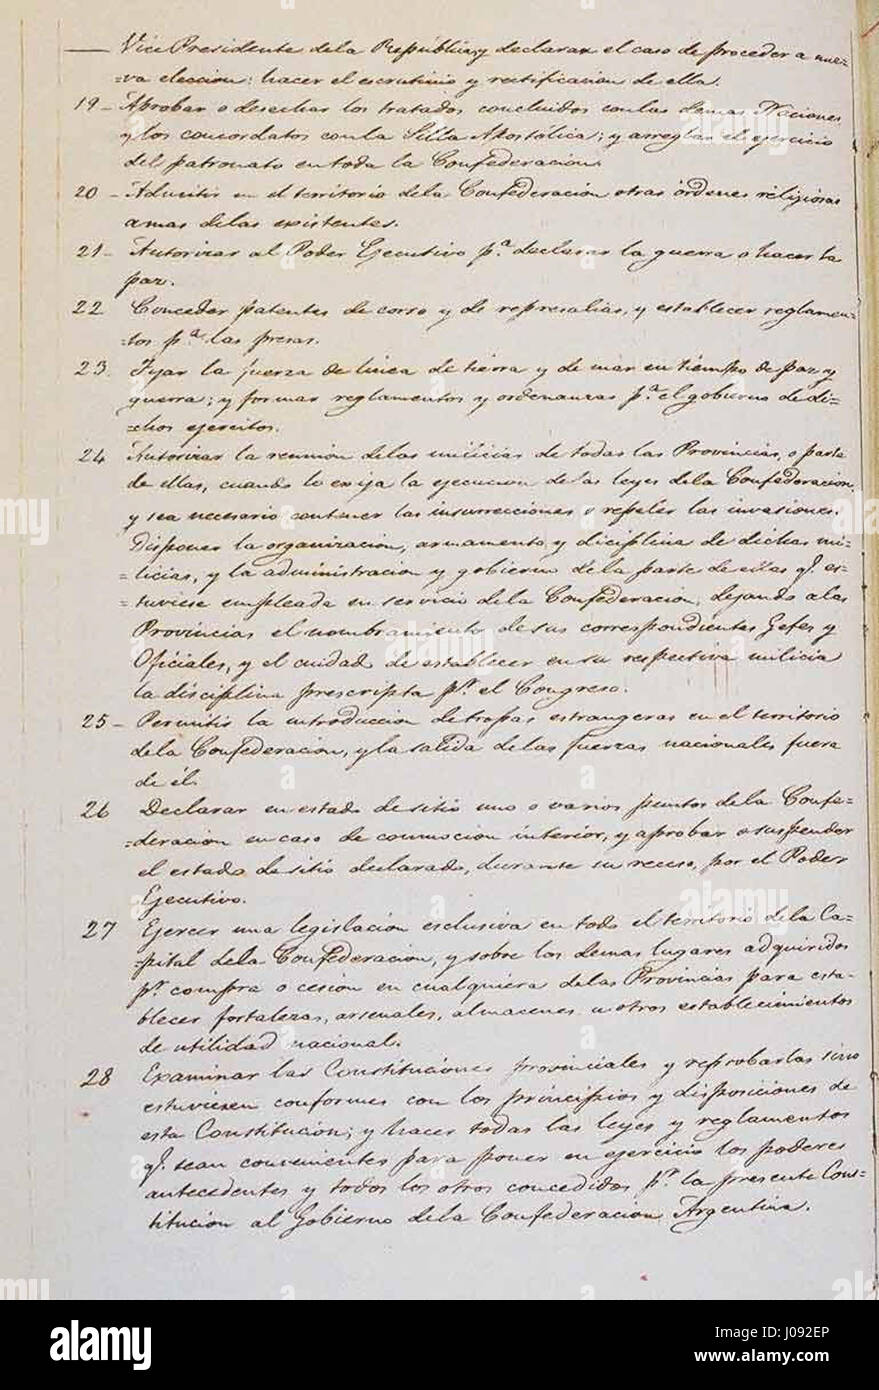 Vice Presidente dela República, y declarar el caso de proceder a nue-
-va eleccion: hacer el escrutinio y rectificacion de ella.
19 - Aprobar o desechar los tratados concluidos con las demas Naciones
y los concordatos con la Silla Apostolica; y arreglar el ejercicio
del patronato en toda la Confederacion.
20 - Admitir en el territorio dela Confederacion otras órdenes religiosas
a mas delas existentes.
21 - Autorizar al Poder Ejecutivo pª. declarar la guerra o hacer la
paz.
22 Conceder patentes de corso y de represalias, y establecer reglamen-
-tos pª. las presas.
23. Fijar la fuerza de linea de tierra y de mar en tiempo de paz y
guerra; y formar reglamentos y ordenanzas pª. el gobierno de di-
-chos ejercitos.
24 Autorizar la reunion delas milicias de todas las Provincias, o parte
de ellas, cuando lo exija la ejecucion de las leyes dela Confederacion,
y sea necesario contener las insurrecciones o repeler las invasiones.
Disponer la organizacion, armamento y diciplina de dichas mi-
-licias, y la administracion y gobierno dela parte de ellas q. es-
-tuviese empleada en servicio dela Confederacion, dejando a las
Provincias el nombramiento de sus correspondientes Gefes y
Oficiales, y el cuidad de establecer en su respectiva milicia
la disciplina prescripta pr. el Congreso.
25 - Permitir la introduccion de tropas estrangeras en el territorio
dela Confederacion, y la salida de las fuerzas nacionales fuera
de él.
26 Declarar en estado de sitio uno o varios puntos de la Confe-
-deracion en caso de conmocion interior, y aprobar o suspender
el estado de sitio declarado, durante su receso, por el Poder
Ejecutivo.
27 Ejercer una legislacion esclusiva en todo el territorio dela Ca-
-pital dela Confederacion, y sobre los demas lugares adquiridos
pr. compra o cesion en cualquiera delas Provincias para esta-
blecer fortalezas, arsenales, almacenes u otros establecimientos
de utilidad nacional.
28 Examinar las Constituciones provinciales y reprobarlas sino
estuviesen conformes con los principios y disposiciones de
esta Constitucion; y hacer todas las leyes y reglamentos
q. sean convenientes para poner en ejercicio los poderes
antecedentes y todos los otros concedidos pr. la presente Cons-
-titucion al Gobierno dela Confederacion Argentina.
alamy
J092EP
www.alamy.com